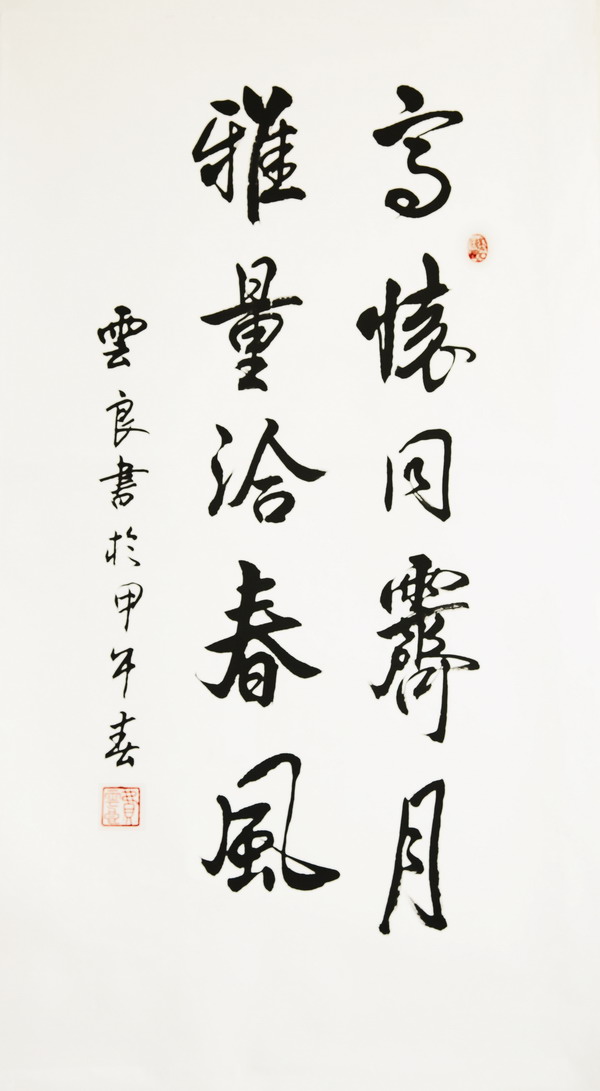 高懷同霽月
雅量洽春風
雲良書於甲午春